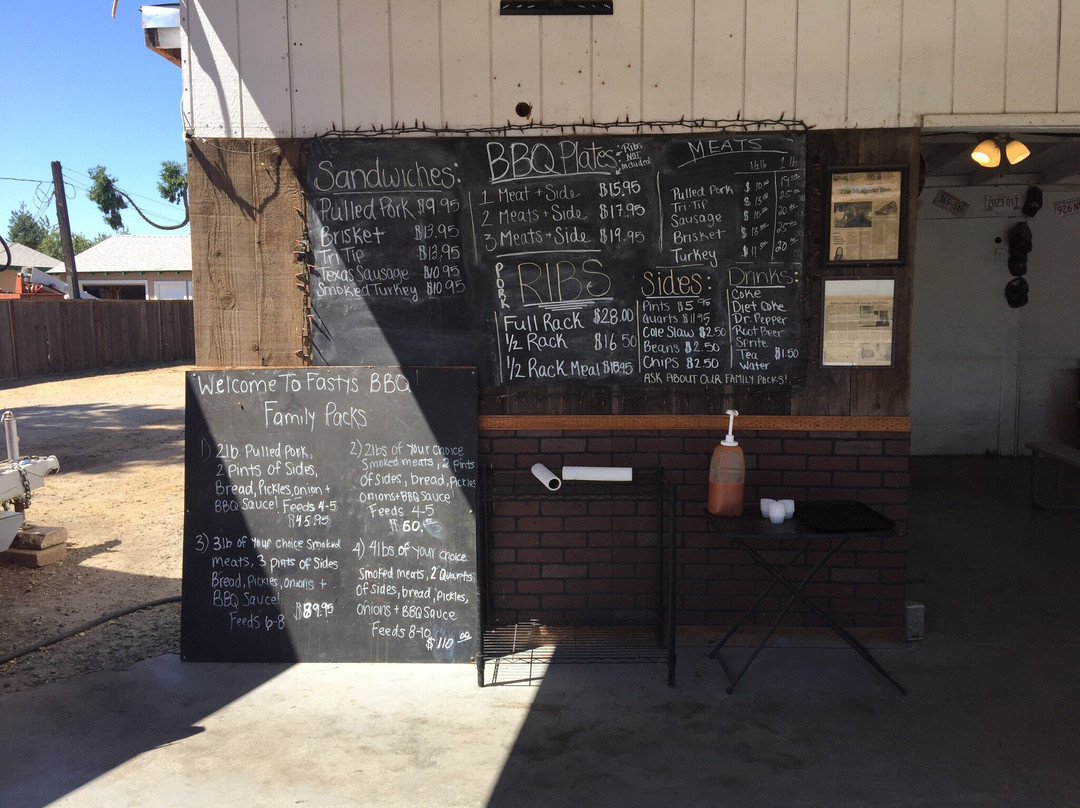 Sandwiches:
Pulled Pork $9.95
Brisket $13.95
Tri Tip $13.95
Texas Sausage $10.95
Smoked Turkey $10.95
BBQ Plates
*Ribs
Not
included
1 Meat + Side $15.95
2 Meats + Side $17.95
3 Meats + Side $19.95
PORK
RIBS
Full Rack $28.00
1/2 Rack $16.50
1/2 Rack Meal
MEATS
1/2 lb 1 lb
Pulled Pork
Tri-Tip
Sausage
Brisket
Turkey
Sides:
Pints $5.95
Quarts $11.95
Cole Slaw $2.50
Beans $2.50
Chips $2.50
Drinks:
Coke
Diet Coke
Dr. Pepper
Root Beer
Sprite
Tea $1.50
Water
ASK ABOUT OUR FAMILY PACKS!
Welcome To Fastys BBQ
Family Packs
1) 2lb Pulled Pork,
2 Pints of Sides,
Bread, Pickles, onion +
BBQ Sauce! Feeds 4-5
$45.95
2) 2lbs of your choice
Smoked meats, 2 pints
of sides, bread, Pickles
onions + BBQ Sauce!
Feeds 4-5
$60.00
3) 3lb of your choice Smoked
meats, 3 pints of Sides
Bread, Pickles, onions +
BBQ Sauce!
$89.95
Feeds 6-8
4) 4lbs of your choice
smoked meats, 2 Quarts
of sides, bread, pickles,
onions + BBQ Sauce
Feeds 8-10
$110.00